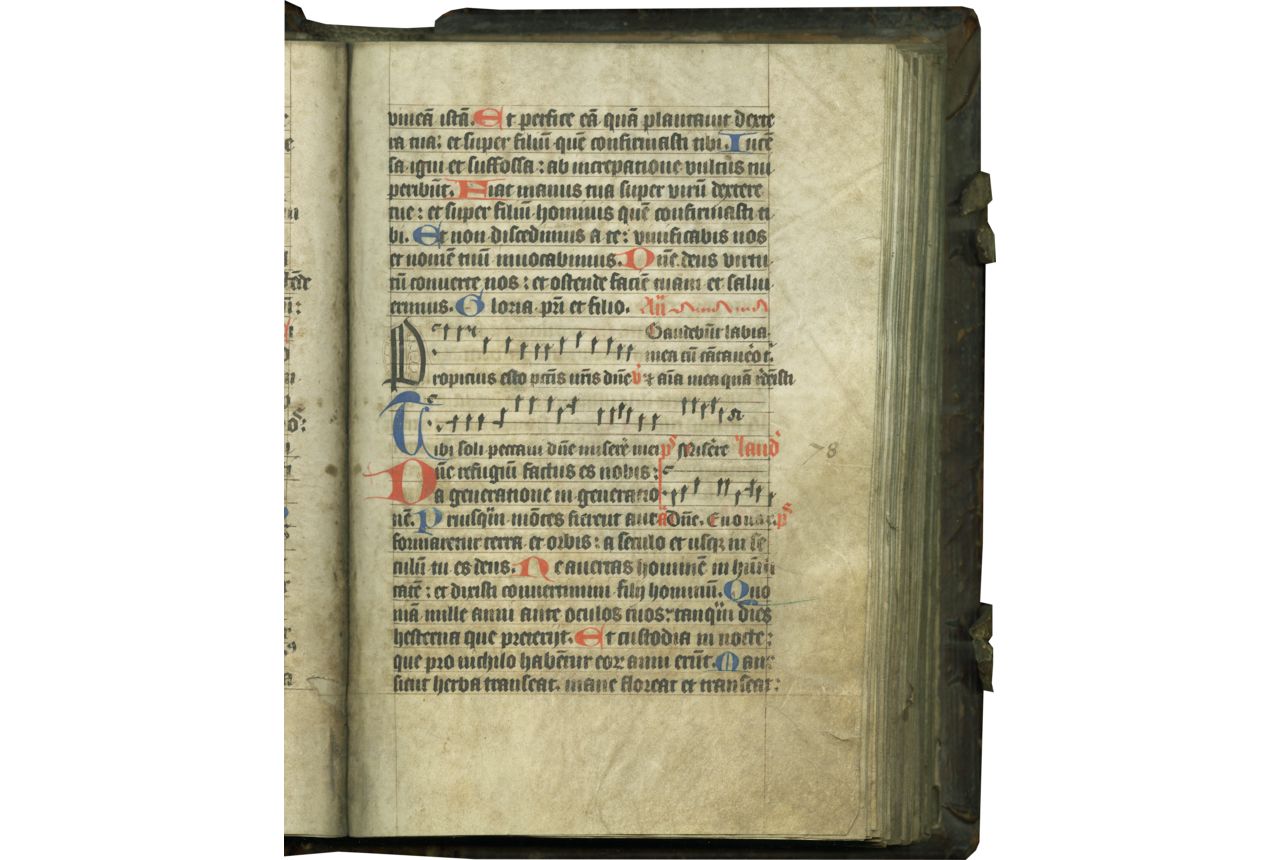 vineā istā. Et perfice eā quā plantavit dexte
ra tua: et super filiū quē confirmasti tibi. Incē
sa igni et suffossa: ab increpatione vultus tui
peribūt. Fiat manus tua super virū dextere
tue: et super filiū hominis quē confirmasti ti
bi. Et non discedimus a te: vivificabis nos
et nomē tuū invocabimus. Dn̄e deus virtu
tū converte nos: et ostende faciē tuam et salvi
erimus. Gloria pr̄i et filio. An̄
Gaudebūt labia
mea cū cātavero t͛.
Propicius esto pctis nr̄is dn̄e v͛ ⁊ aīa mea quā redēisti
Tibi soli peccavi dn̄e miserē mei ps̄ Miserēre laud͛
Dn̄e refugiū factus es nobis:
a generatione in generatio
nē. Priusq̄m mōtes fierent aut a͛ Dn̄e. Euouae. ps̄
formaretur terra et orbis: a seculo et usq; in se
culū tu es deus. Ne avertas hominē in humili
tatē: et dixisti convertimini filij hominū. Quo
niā mille anni ante oculos tuos: tanq̄m dies
hesterna que preterijt. Et custodia in nocte:
que pro nichilo habētur eoꝝ anni erūt. Mane
sicut herba transeat. mane floreat et transeat:
78